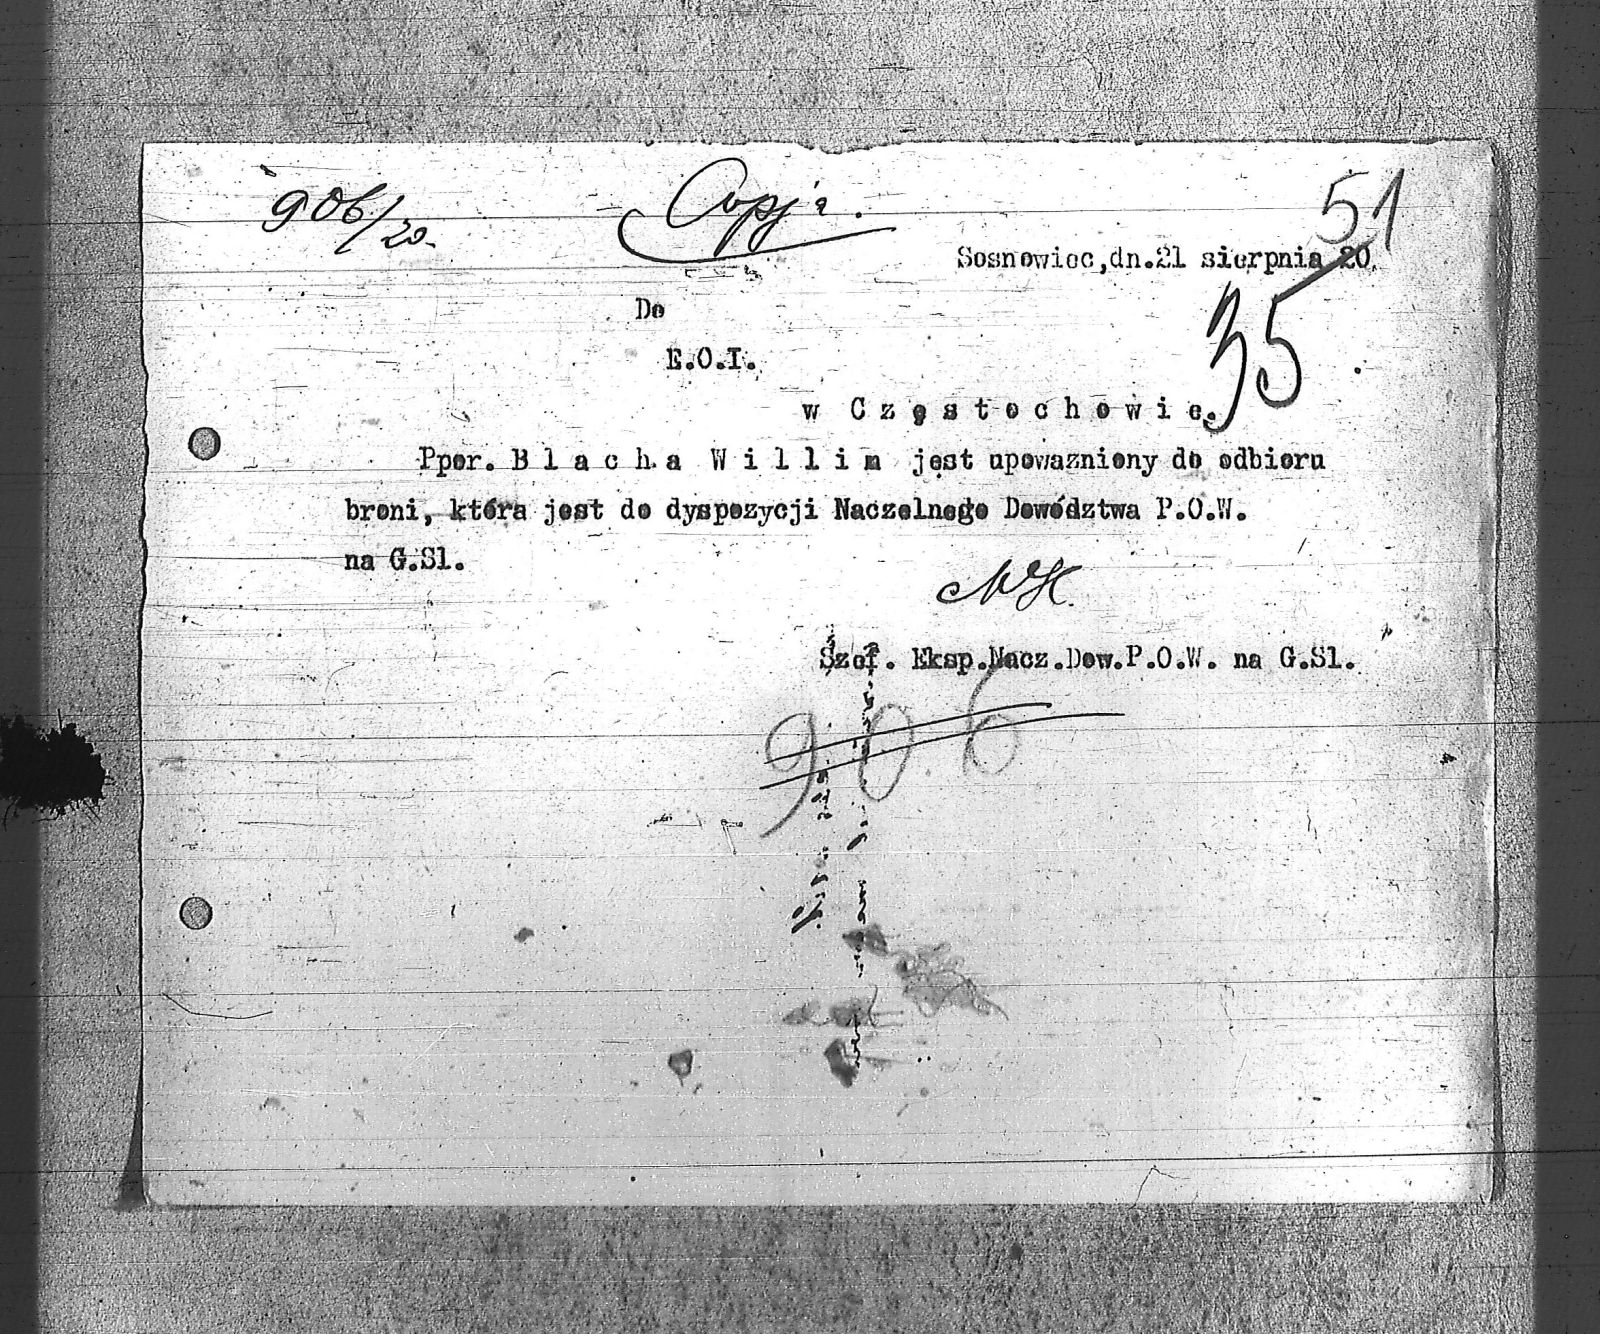 906/20.
Copja.
51
Sosnowiec,dn.21 sierpnia 20
35
Do
E.O.I.
w Częstochowie.
Ppor. Blacha Willim jest upowazniony do odbioru
broni, która jest do dyspozycji Naczelnego Dowództwa P.O.W.
na G.Sl.
Szef. Eksp.Nacz.Dow.P.O.W. na G.Sl.
906